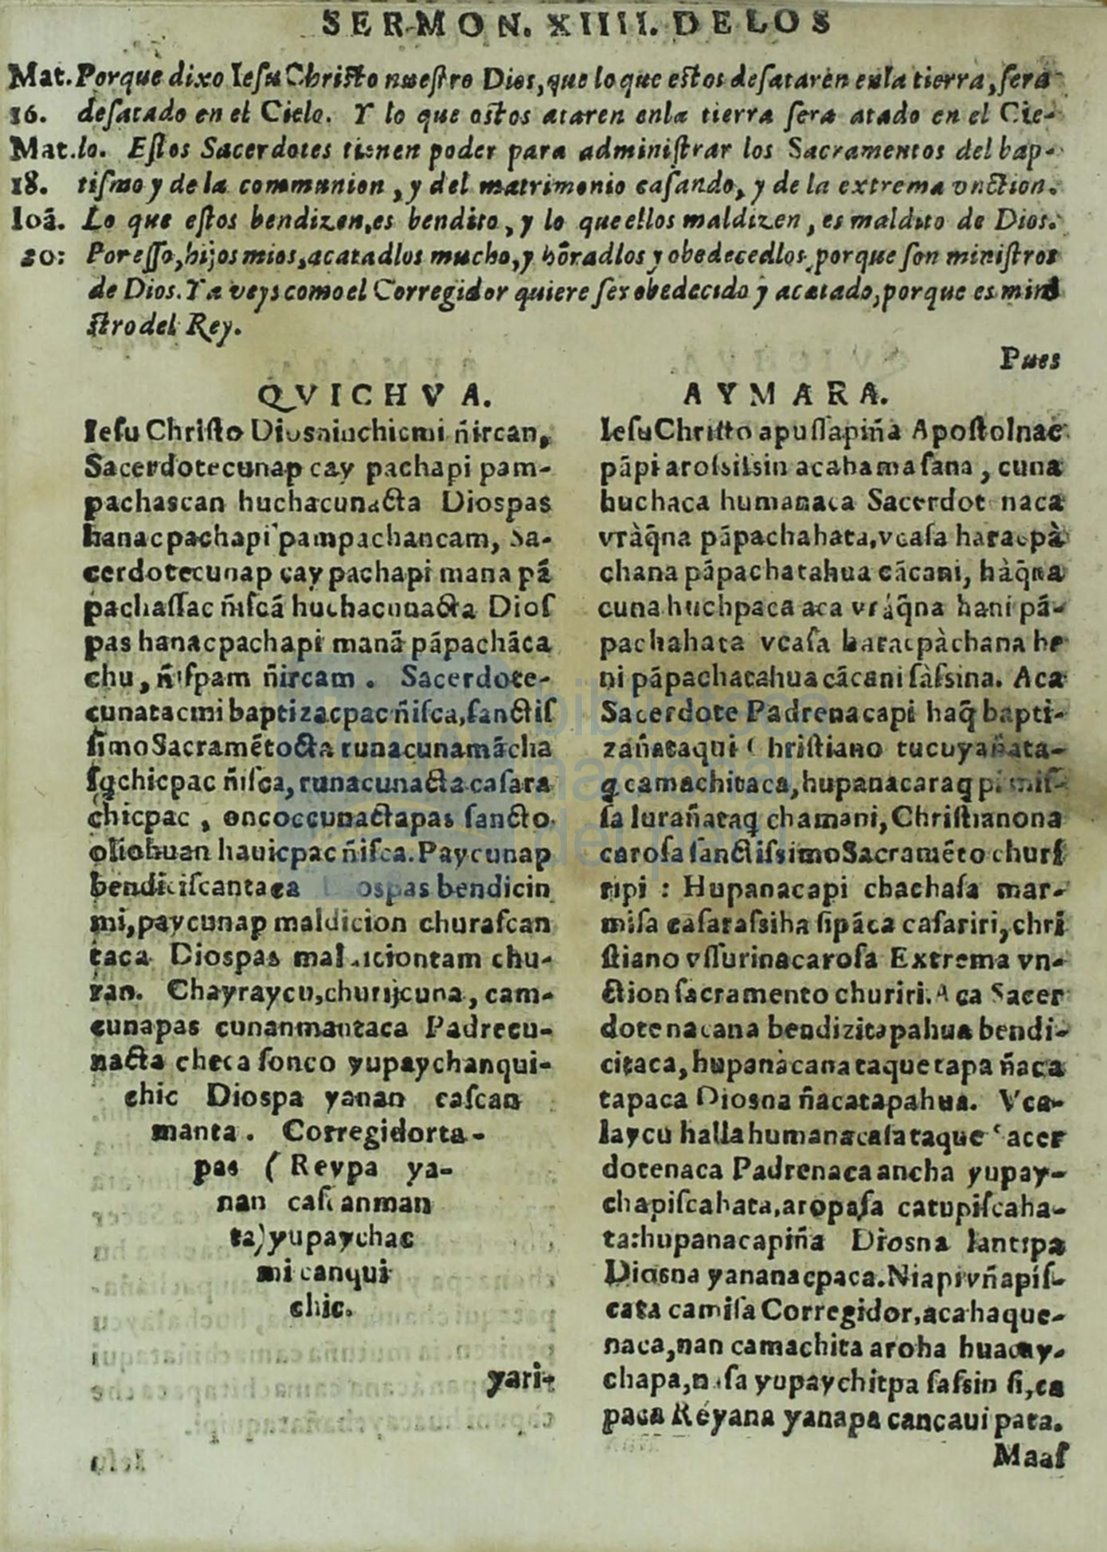 SERMON. XIIII. DE LOS
Mat. Porque dixo Iesu Christo nuestro Dios, que lo que estos desataren enla tierra, sera
16. desatado en el Cielo. Y lo que estos ataren enla tierra sera atado en el Cie-
Mat. lo. Estos Sacerdotes tienen poder para administrar los Sacramentos del bap-
18. tismo y de la communion, y del matrimonio casando, y de la extrema vnction.
Ioã. Lo que estos bendizen, es bendito, y lo que ellos maldizen, es maldito de Dios.
20: Por esso, hijos mios, acatadlos mucho, y hõradlos y obedecedlos, porque son ministros
de Dios. Ya veys como el Corregidor quiere ser obedecido y acatado, porque es mini
stro del Rey.
Pues
QVICHVA.
Iesu Christo Diosninchicmi ñircan,
Sacerdotecunap cay pachapi pam-
pachascan huchacunacta Diospas
hanacpachapi pampachancam, Sa-
cerdotecunap cay pachapi mana pã
pachassac ñiscã huchacunacta Dios
pas hanacpachapi manã pãpachãca
chu, ñispam ñircam. Sacerdote-
cunatacmi baptizacpac ñisca, sanctis
simo Sacramẽtocta runacunamãcha
sq̃chicpac ñisca, runacunacta casara
chicpac, oncoccunactapas sancto
oliohuan hauicpac ñisca. Paycunap
bendiciscantaca Diospas bendicin
mi, paycunap maldicion churascan
taca Diospas maldiciontam chu-
ran. Chayraycu, churijcuna, cam-
cunapas cunanmantaca Padrecu-
nacta checa sonco yupaychanqui-
chic Diospa yanan cascan
manta. Corregidorta-
pas (Reypa ya-
nan cascanman
ta) yupaychac
mi canqui
chic.
yari-
AYMARA.
Iesu Christo apussapiña Apostolnac
pãpi arossitsin acahama sana, cuna
huchaca humanaca Sacerdotenaca
vràq̃na pãpachahata, vcasa haracpà
chana pãpachatahua cãcani, hàq̃na
cuna huchpaca aca vràq̃na hani pã-
pachahata vcasa haracpàchana ha
ni pãpachatahua cãcani sàssina. Aca
Sacerdote Padrenacapi haq̃ bapti-
zañataqui Christiano tucuyañata-
q̃ camachitaca, hupanacaraq̃ pi mis-
sa lurañataq̃ chamani, Christianona
carosa sanctissimo Sacramẽto churi
ripi: Hupanacapi chachasa mar-
misa casarassiha sipãca casariri, chri
stiano vssurinacarosa Extrema vn-
ction sacramento churiri. Aca Sacer
dotenacana bendizitapahua bendi-
citaca, hupanàcana taquetapa ñaca
tapaca Diosna ñacatapahua. Vca-
laycu halla humanacasataque Sacer
dotenaca Padrenaca ancha yupay-
chapiscahata, aropasa catupiscaha-
ta: hupanacapiña Diosna lantipa
Diosna yananacpaca. Niapi vñapis-
cata camisa Corregidor, aca haque-
naca, nan camachita aroha huacay-
chapa, nasa yupaychitpa sassin si, ca
paca Reyana yanapa cancaui pata.
Maas